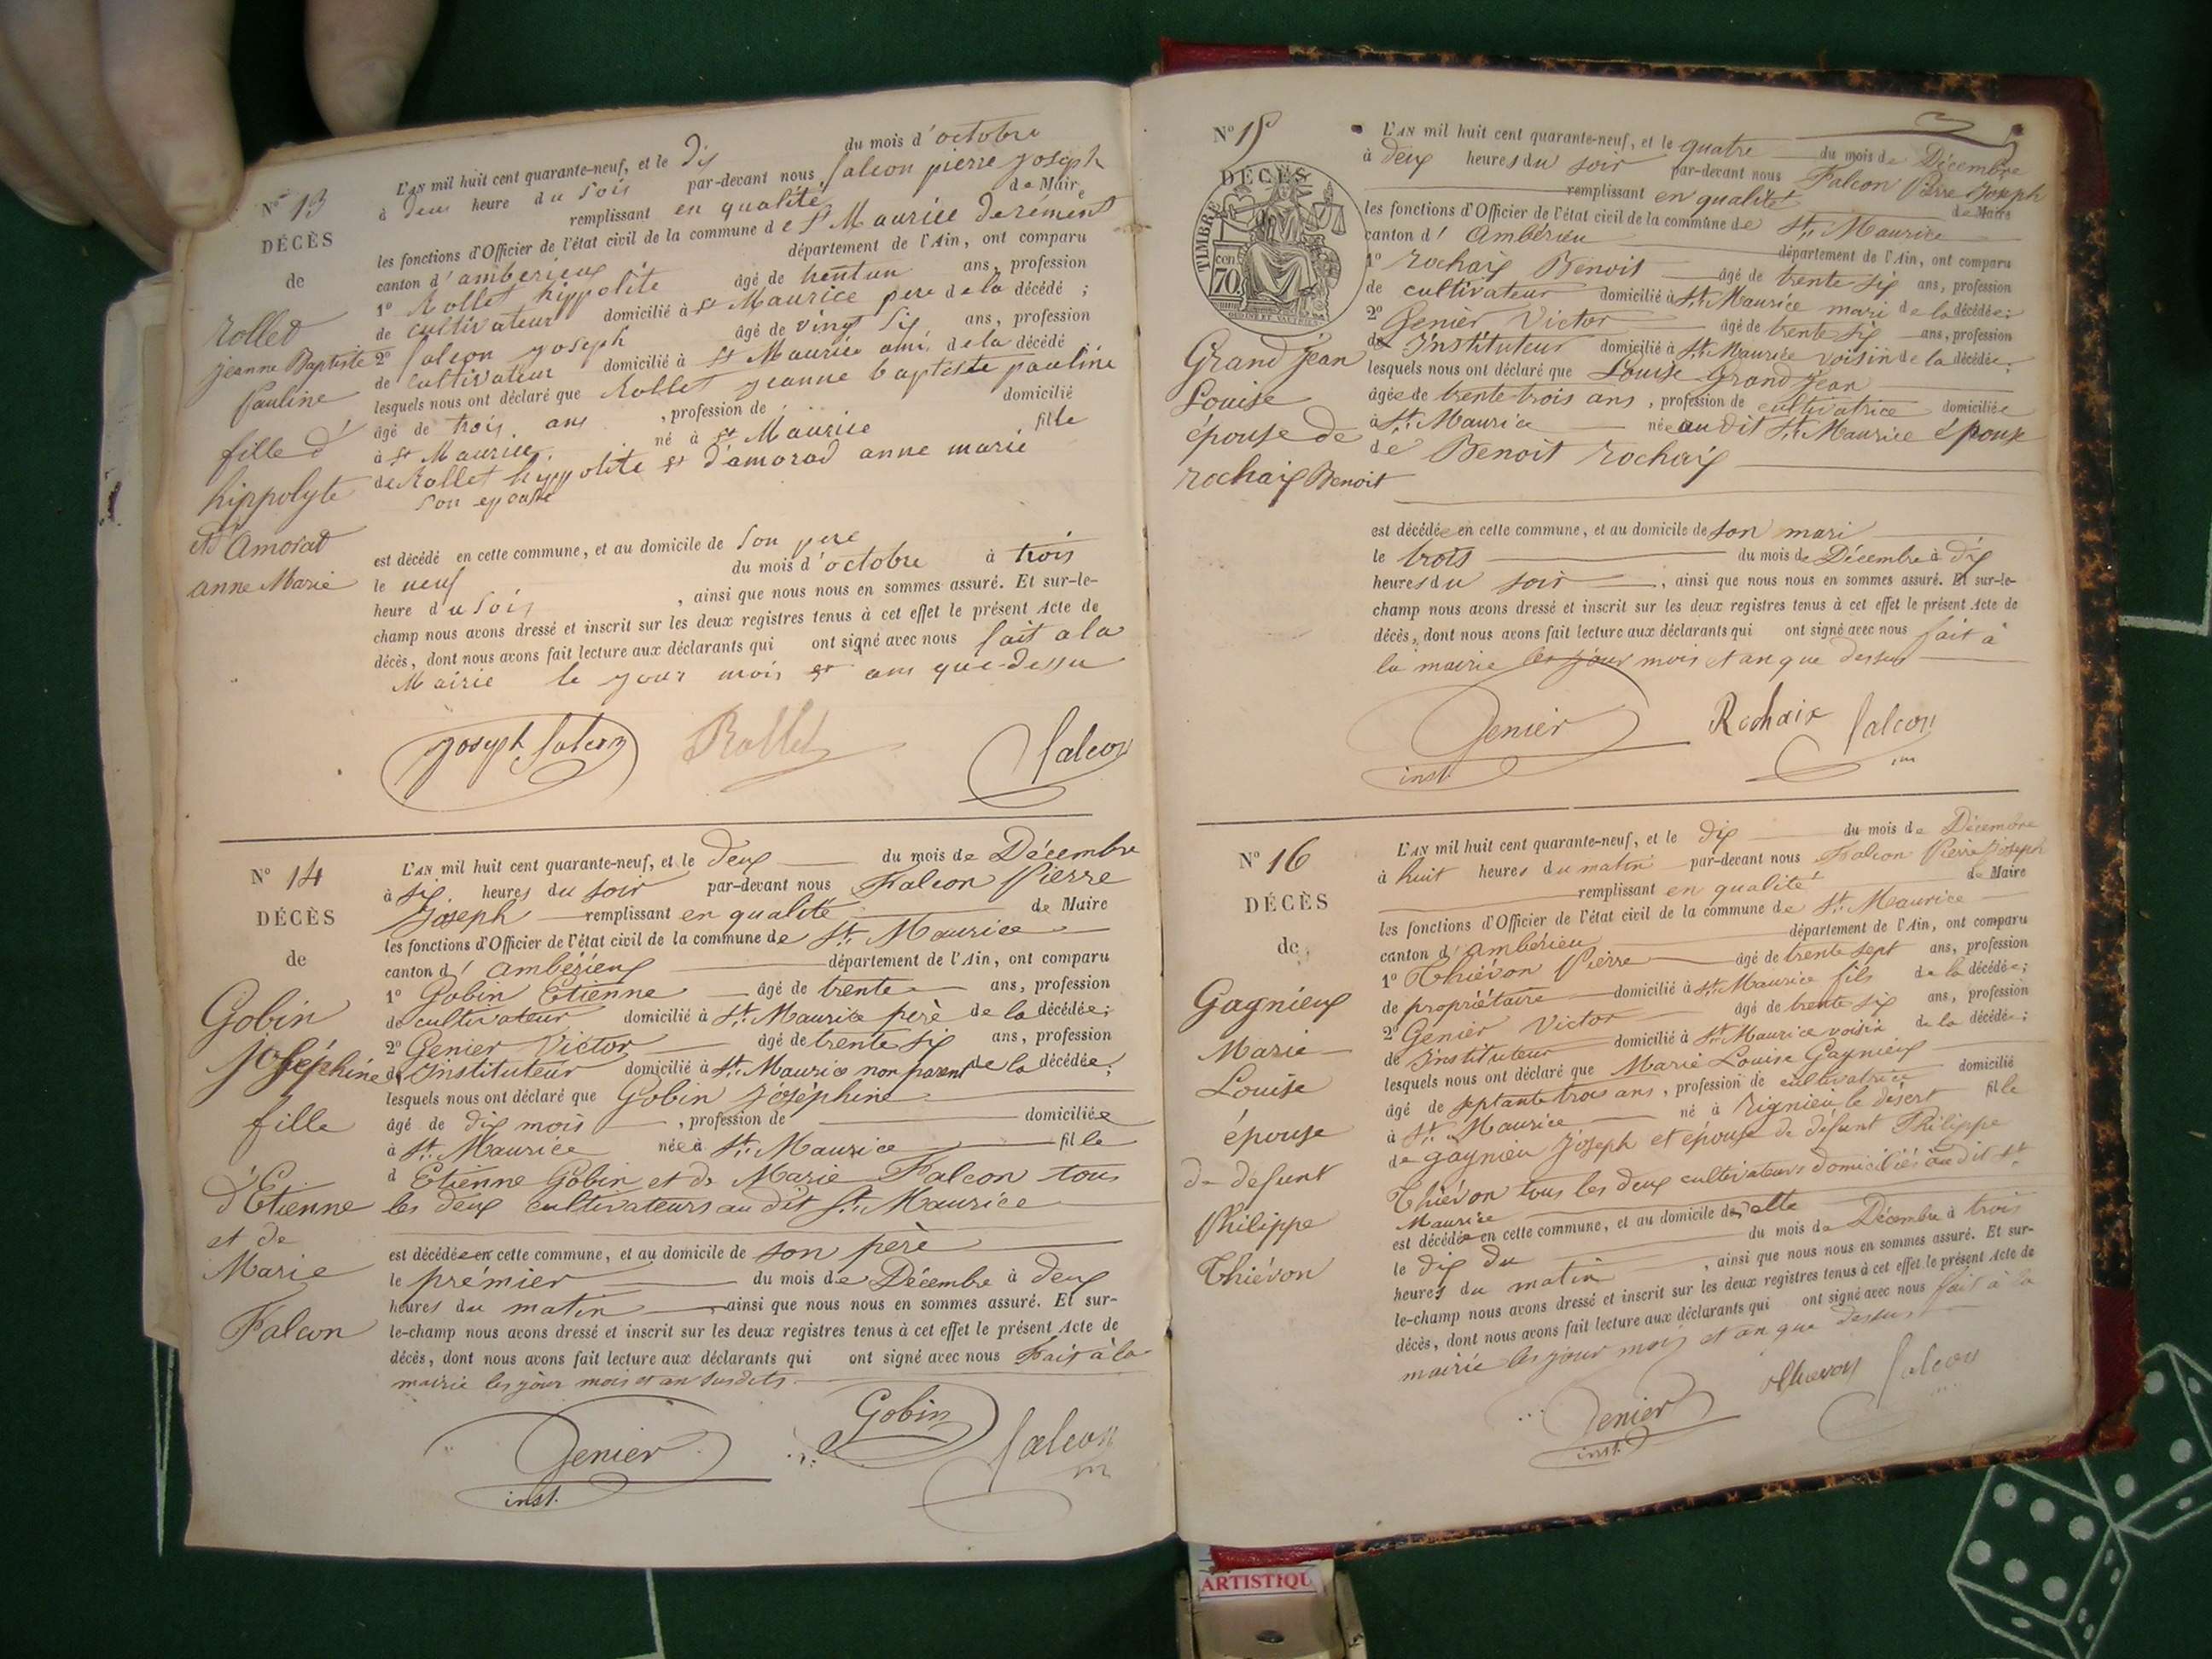 N° 13
DÉCÈS
de
rollet
jeanne Baptiste
Pauline
fille d'
hippolyte
et d'Amorad
anne Marie
L'AN mil huit cent quarante-neuf, et le dix du mois d'octobre
à deux heure du Soir par-devant nous falcon pierre joseph
remplissant en qualité de Maire
les fonctions d'Officier de l'état civil de la commune de St Maurice de rément
canton d'amberieux département de l'Ain, ont comparu
1° Rollet hippolite âgé de trent un ans, profession
de cultivateur domicilié à St Maurice pere de la décédé ;
2° falcon joseph âgé de vingt six ans, profession
de Cultivateur domicilié à St Maurice ami de la décédé
lesquels nous ont déclaré que Rollet jeanne baptiste pauline
âgé de trois ans , profession de domicilié
à St Maurice né à St Maurice fille
de Rollet hippolite et d'amorad anne marie
Son epouse
est décédé en cette commune, et au domicile de Son pere
le neuf du mois d'octobre à trois
heure du Soir , ainsi que nous nous en sommes assuré. Et sur-le-
champ nous avons dressé et inscrit sur les deux registres tenus à cet effet le présent Acte de
décès, dont nous avons fait lecture aux déclarants qui ont signé avec nous fait a la
Mairie le jour mois et ans que dessu
joseph falcon Rollet falcon
N° 14
DÉCÈS
de
Gobin
Joséphine
fille
d'Etienne
et de
Marie
Falcon
L'AN mil huit cent quarante-neuf, et le deux du mois de Décembre
à six heures du soir par-devant nous Falcon Pierre
Joseph remplissant en qualité de Maire
les fonctions d'Officier de l'état civil de la commune de St. Maurice
canton d'Ambérieux département de l'Ain, ont comparu
1° Gobin Etienne âgé de trente ans, profession
de cultivateur domicilié à St. Maurice père de la décédée ;
2° Genier Victor âgé de trente six ans, profession
d'Instituteur domicilié à St. Maurice non parent de la décédée ;
lesquels nous ont déclaré que Gobin Joséphine
âgé de dix mois , profession de domiciliée
à St. Maurice née à St. Maurice fille
d'Etienne Gobin et de Marie Falcon tous
les deux cultivateurs au dit St. Maurice
est décédée en cette commune, et au domicile de son père
le prémier du mois de Décembre à deux
heures du matin ainsi que nous nous en sommes assuré. Et sur-
le-champ nous avons dressé et inscrit sur les deux registres tenus à cet effet le présent Acte de
décès, dont nous avons fait lecture aux déclarants qui ont signé avec nous Fait à la
mairie les jour mois et an susdits.
Genier Gobin falcon
inst. m
N° 15
DÉCÈS
TIMBRE
70 cen
Grand Jean
Louise
épouse de
rochaix Benoit
L'AN mil huit cent quarante-neuf, et le quatre du mois de Décembre
à deux heures du soir par-devant nous Falcon Pierre Joseph
remplissant en qualité de Maire
les fonctions d'Officier de l'état civil de la commune de St. Maurice
canton d'Ambérieu département de l'Ain, ont comparu
1° rochaix Benoit âgé de trente six ans, profession
de cultivateur domicilié à St. Maurice mari de la décédée ;
2° Genier Victor âgé de trente six ans, profession
d'Instituteur domicilié à St. Maurice voisin de la décédée ;
lesquels nous ont déclaré que Louise Grand Jean
âgée de trente trois ans , profession de cultivatrice domiciliée
à St. Maurice née au dit St. Maurice épouse
de Benoit rochaix
est décédée en cette commune, et au domicile de son mari
le trois du mois de Décembre à dix
heures du soir , ainsi que nous nous en sommes assuré. Et sur-le-
champ nous avons dressé et inscrit sur les deux registres tenus à cet effet le présent Acte de
décès, dont nous avons fait lecture aux déclarants qui ont signé avec nous fait à
la mairie les jour mois et an que dessus
Genier Rochaix falcon
inst. m
N° 16
DÉCÈS
de
Gagnieux
Marie
Louise
épouse
de défunt
Philippe
Thiévon
L'AN mil huit cent quarante-neuf, et le dix du mois de Décembre
à huit heures du matin par-devant nous Falcon Pierre Joseph
remplissant en qualité de Maire
les fonctions d'Officier de l'état civil de la commune de St. Maurice
canton d'Ambérieu département de l'Ain, ont comparu
1° Thiévon Pierre âgé de trente sept ans, profession
de propriétaire domicilié à St. Maurice fils de la décédée ;
2° Genier Victor âgé de trente six ans, profession
de Instituteur domicilié à St. Maurice voisin de la décédée ;
lesquels nous ont déclaré que Marie Louise Gagnieux
âgé de septante trois ans , profession de cultivatrice domicilié
à St. Maurice né à Rignieu le désert fille
de gagnieu Joseph et épouse de défunt Philippe
Thiévon tous les deux cultivateurs domiciliés au dit St.
Maurice
est décédée en cette commune, et au domicile de elle
le dix du du mois de Décembre à trois
heures du matin , ainsi que nous nous en sommes assuré. Et sur-
le-champ nous avons dressé et inscrit sur les deux registres tenus à cet effet le présent Acte de
décès, dont nous avons fait lecture aux déclarants qui ont signé avec nous fait à la
mairie les jour mois et an que dessus
Genier thievon falcon
inst.
ARTISTIQU